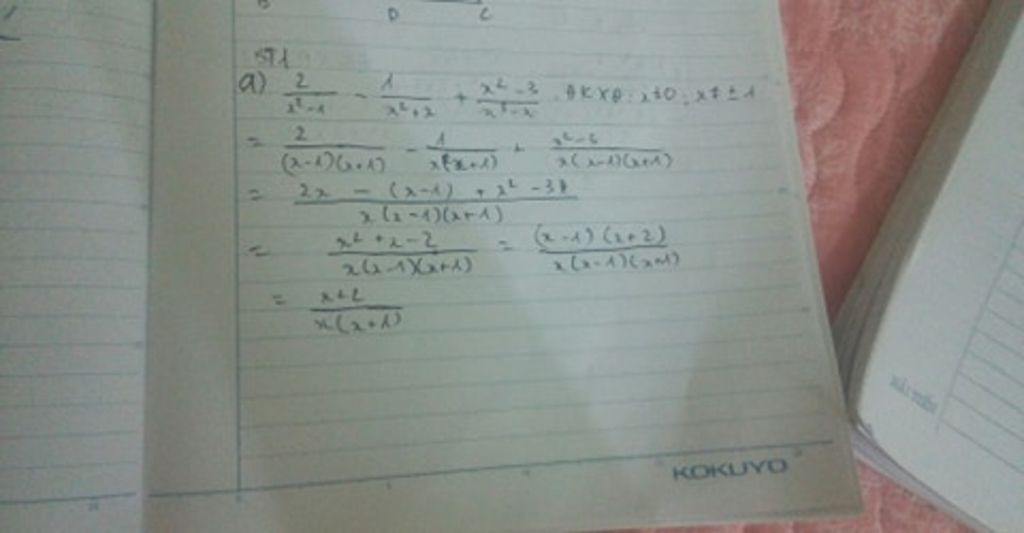 D C
a) \frac{2}{x^2-1} - \frac{1}{x^2+x} + \frac{x^2-3}{x^3-x} ĐKXĐ: x≠0; x≠±1
= \frac{2}{(x-1)(x+1)} - \frac{1}{x(x+1)} + \frac{x^2-3}{x(x-1)(x+1)}
= \frac{2x - (x-1) + x^2 - 3}{x(x-1)(x+1)}
= \frac{x^2+x-2}{x(x-1)(x+1)} = \frac{(x-1)(x+2)}{x(x-1)(x+1)}
= \frac{x+2}{x(x+1)}
KOKUYO